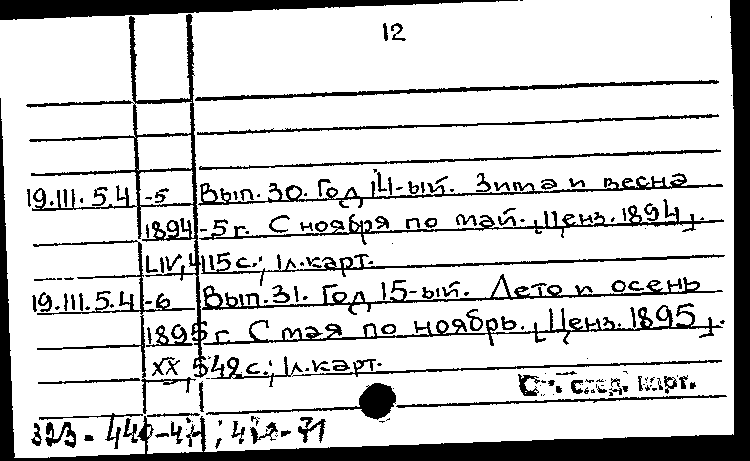 12
19.III.5.4 -5 Вып. 30. Год 14-ый. Зима и весна
1894-5 г. С ноября по май. [Ценз. 1894].
LIV, 415 с.; 1 л. карт.
19.III.5.4 -6 Вып. 31. Год 15-ый. Лето и осень
1895 г. С мая по ноябрь. [Ценз. 1895].
XX, 542 с.; 1 л. карт.
См. след. карт.